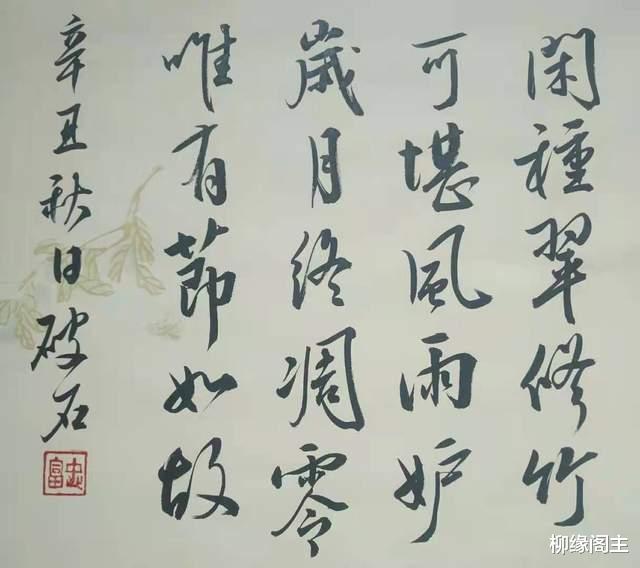 閑種翠修竹
可堪風雨妒
歲月終凋零
唯有節如故
辛丑秋日破石
忠富
柳缘阁主